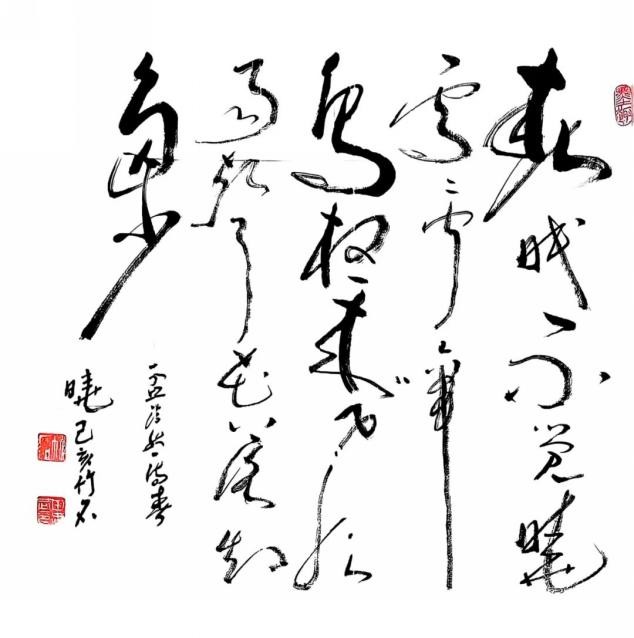 春眠不觉晓
處々闻啼
鸟夜来风
雨聲花落知
多少
孟浩然诗春
晓己亥竹石